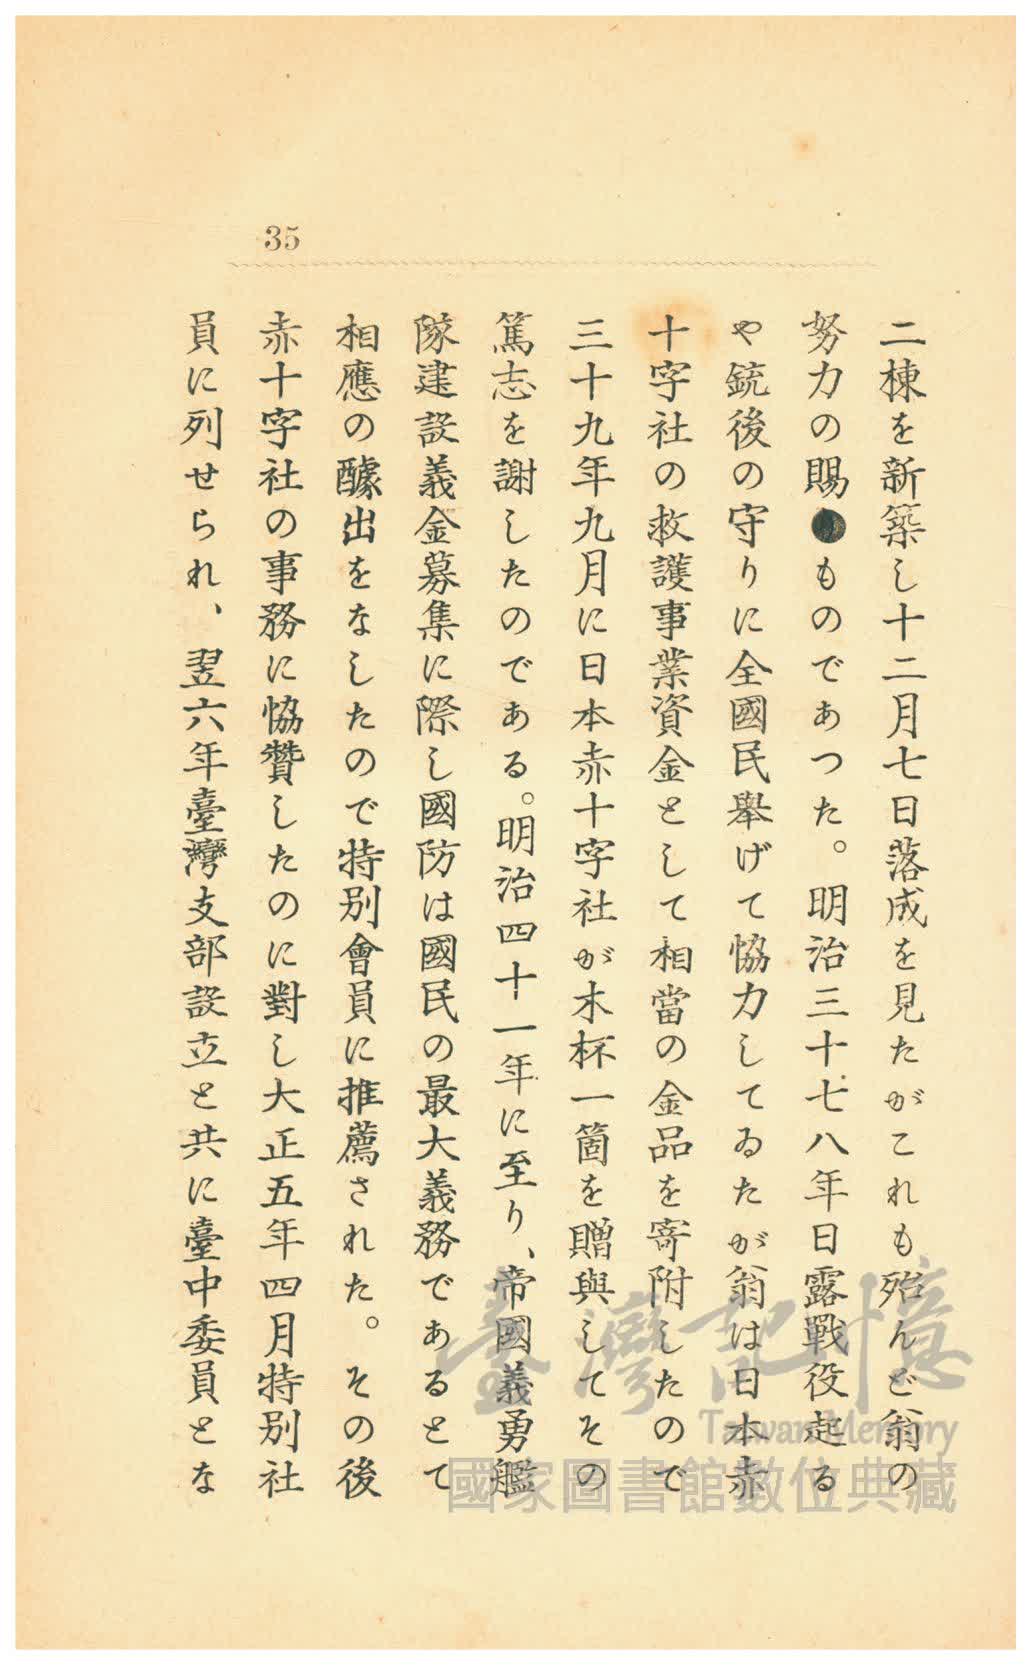 35
二棟を新築し十二月七日落成を見たがこれも殆んど翁の
努力の賜ものであつた。明治三十七八年日露戰役起る
や銃後の守りに全國民舉げて協力してゐたが翁は日本赤
十字社の救護事業資金として相當の金品を寄附したので
三十九年九月に日本赤十字社が木杯一箇を贈與してその
篤志を謝したのである。明治四十一年に至り、帝國義勇艦
隊建設義金募集に際し國防は國民の最大義務であるとて
相應の醵出をなしたので特別會員に推薦された。その後
赤十字社の事務に協贊したのに對し大正五年四月特別社
員に列せられ、翌六年臺灣支部設立と共に臺中委員とな
臺灣記憶
Taiwan Memory
國家圖書館數位典藏